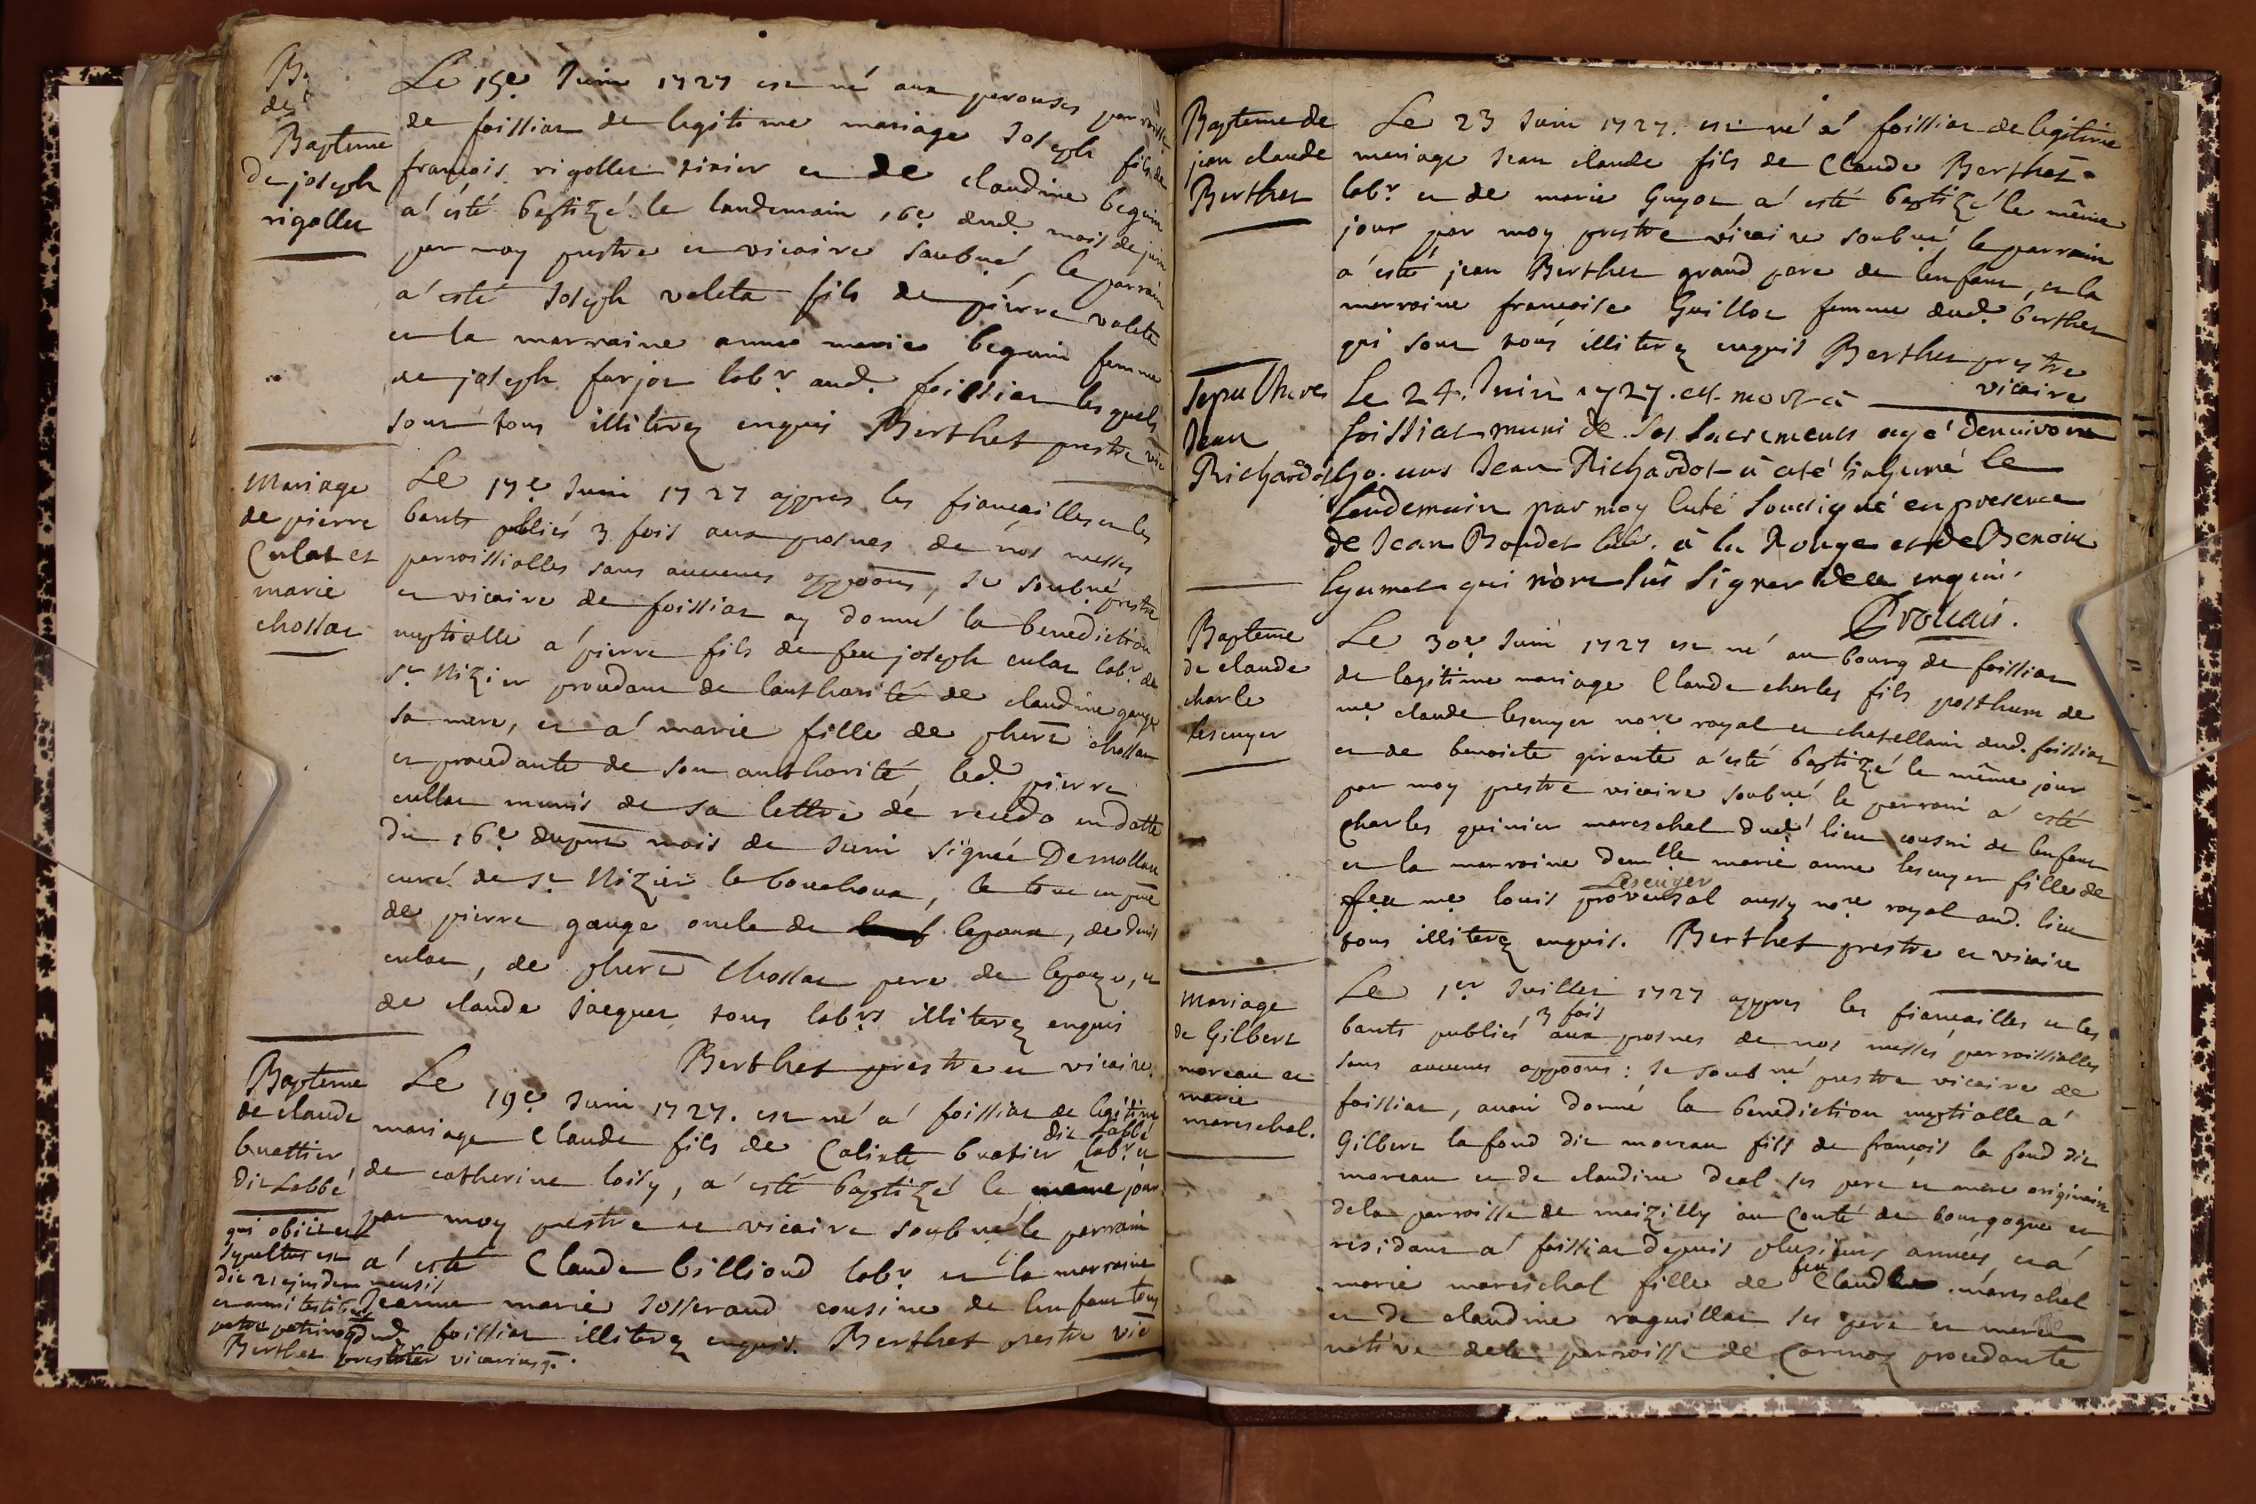 B.
de
Bapteme
de joseph
rigollet
Le 15e Juin 1727 est né aux perouses parroisse
de foissiat de legitime mariage Joseph fils de
francois rigollet tixier et de claudine beguin
a' esté baptizé le landemain 16e dud. mois de juin
par moy prestre et vicaire soubné, le parrain
a' esté Joseph valeta fils de pierre valeta
et la marraine anne marie beguin femme
de joseph farjot labr aud. foissiat lesquels
sont tous illiterez enquis Berthet prestre vic
Mariage
de pierre
Culat et
marie
chossat
Le 17e Juin 1727 appres les fiancailles et les
bants publiés 3 fois aux prosnes de nos messes
parroissialles sans aucunes oppoons, Je soubné prestre
et vicaire de foissiat ay donné la benediction
nuptialle a' pierre fils de feu joseph culat labr de
st Nizier procedant de lauthorité de claudine gauge
sa mere, et a' marie fille de phert chossat
et procedante de son authorité, led. pierre
cullat munis de sa lettre de recedo en datte
du 16e du pnt mois de Juin signée Demollan
curé de st Nizier le bouchoux, le tout en pnce
de pierre gauge oncle de lepoux, de denis
culat, de phert Chossat pere de lepoze, et
de claude Jacquet, tous labrs illiterez enquis
Berthet prestre et vicaire.
Bapteme
de claude
buattier
dit Labbé
qui obiit et
sepultus est
die 21 ejusdem mensis
et anni testibus
patre patrino
Berthet presbiter vicarius.
Le 19e Juin 1727. est né a' foissiat de legitime
mariage Claude fils de Calixte buatier dit Labbé labr et
de catherine loisy, a' esté baptizé le meme jour
par moy prestre et vicaire soubné le parrain
a' esté Claude billioud labr et la marraine
Jeanne marie Josserand cousine de lenfant tous
dud. foissiat illiterez enquis. Berthet prestre vic
Bapteme de
jean claude
Berthet
Le 23 Juin 1727. est né a' foissiat de legitime
mariage Jean claude fils de Claude Berthet
labr et de marie Guyot a' esté baptizé le même
jour par moy prestre vicaire soubné, le parrain
a' esté jean Berthet grand pere de lenfant, et la
marraine francoise Guillot femme dud. berthet
qui sont tous illiterez enquis Berthet prestre
vicaire
Sepulthure
Jean
Richardot
Le 24. Juin 1727. est mort à
foissiat muni de ses sacrements agé denviron
50. ans Jean Richardot a eté inhumé le
lendemain par moy Curé soussigné en presence
de Jean Boudet lab. à la Rouge et de Benoit
Guyennet qui n'ont sus signer de ce enquis.
Provcais.
Bapteme
de claude
charle
lescuyer
Le 30e Juin 1727 est né au bourg de foissiat
de legitime mariage Claude charles fils posthum de
me claude lescuyer nore royal et chatellain dud. foissiat
et de benoicte girante a' esté baptizé le même jour
par moy prestre vicaire soubné le parrain a' esté
Charles guinier mareschal dud lieu cousin de lenfant
et la marraine demlle marie anne lescuyer fille de
feu me louis provensal Lescuyer aussy nore royal aud. lieu
tous illiterez enquis. Berthet prestre et vicaire
Mariage
de Gilbert
moreau et
marie
mareschal.
Le 1er Juillet 1727 appres les fiancailles et les
bants publiés 3 fois aux prosnes de nos messes parroissialles
sans aucunes oppoons: Je soubné prestre vicaire de
foissiat, avoir donné la benediction nuptialle a'
Gilbert la fond dit moreau fils de francois la fond dit
moreau et de claudine deal ses pere et mere originaire
dela parroisse de maizilly au Conté de bourgogne et
residant a' foissiat depuis plusieurs années, et a'
marie mareschal fille de feu Claude mareschal
et de claudine raguillat ses pere et mere
native dela parroisse de Cormoz procedante